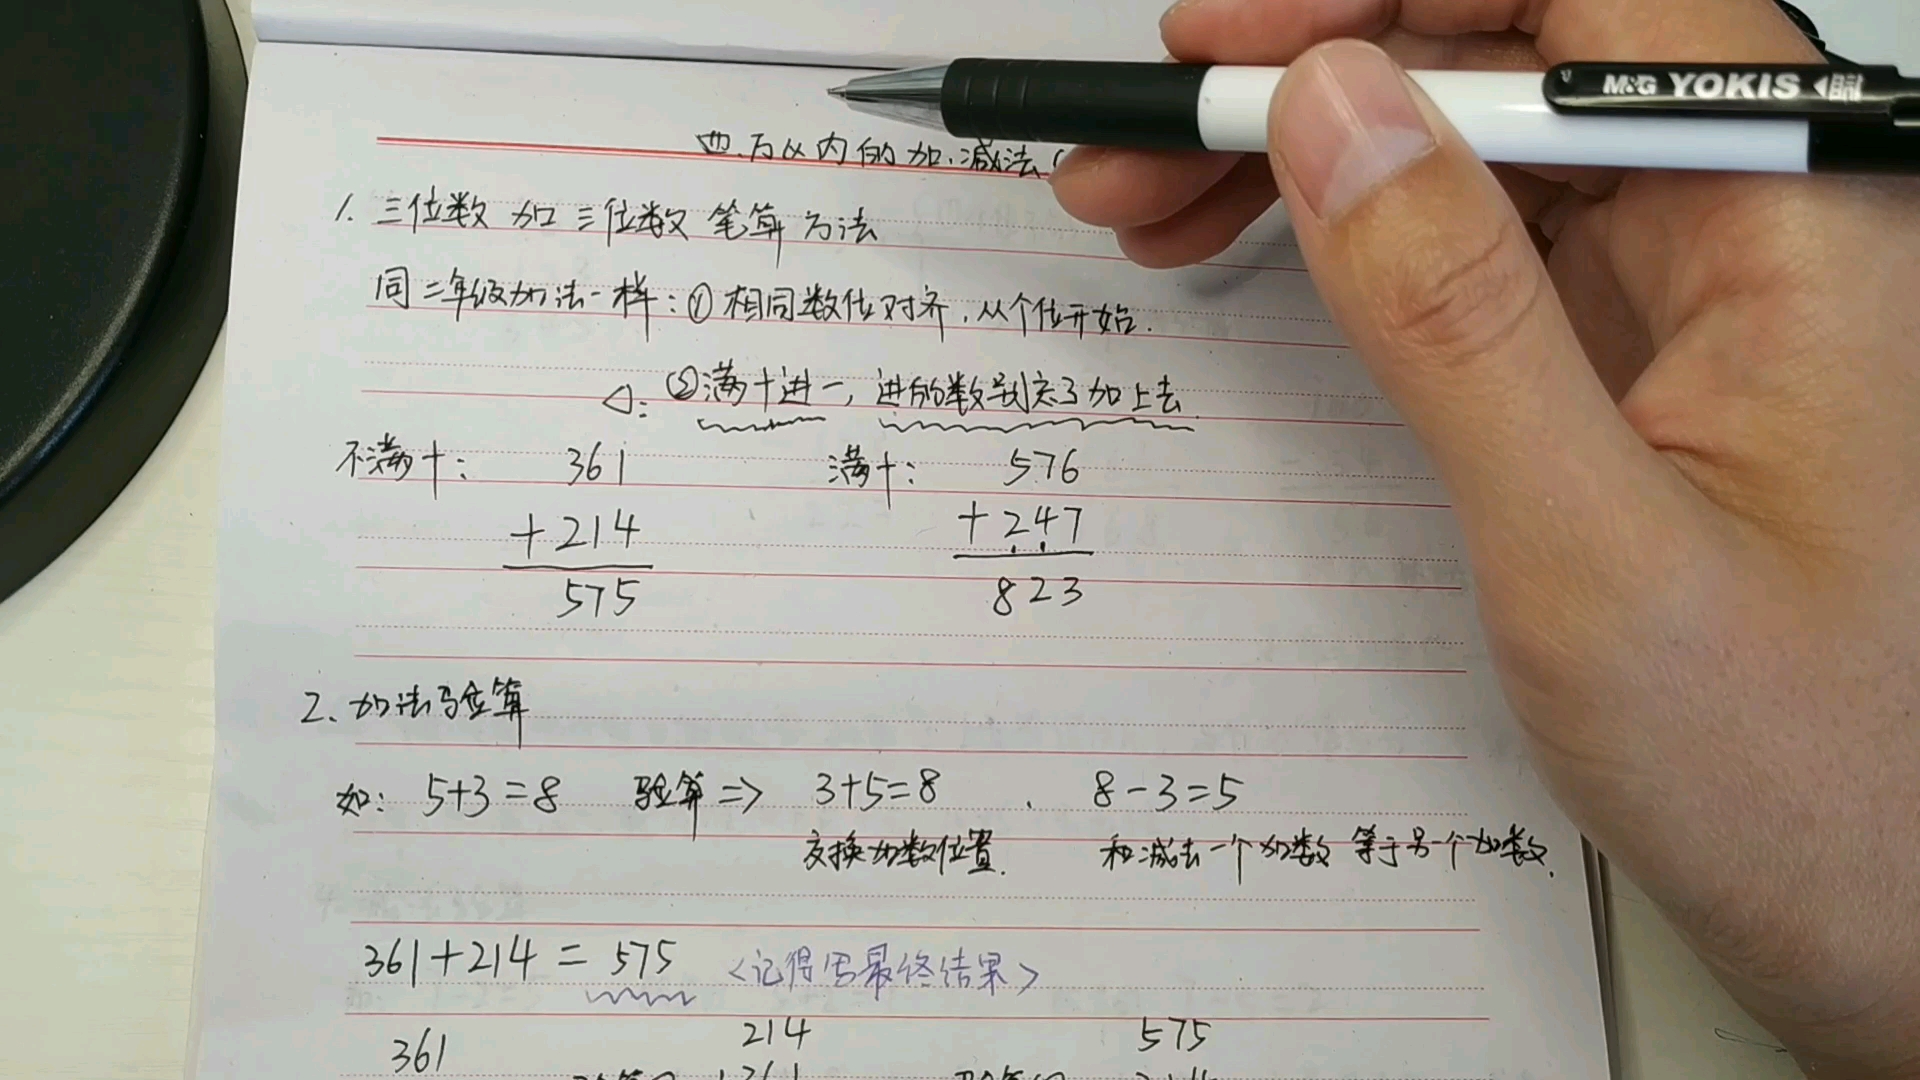 M&G YOKIS
四.万以内的加.减法(
1. 三位数 加 三位数 笔算 方法
同二年级加法一样：① 相同数位对齐，从个位开始.
②满十进一，进的数别忘了加上去.
不满十： 361 满十： 576
+214 +247
575 823
2、加法验算
如： 5+3=8 验算=> 3+5=8 . 8-3=5
交换加数位置. 和减去一个加数 等于另一个加数.
361+214 = 575 <记得写最终结果>
361 214 575